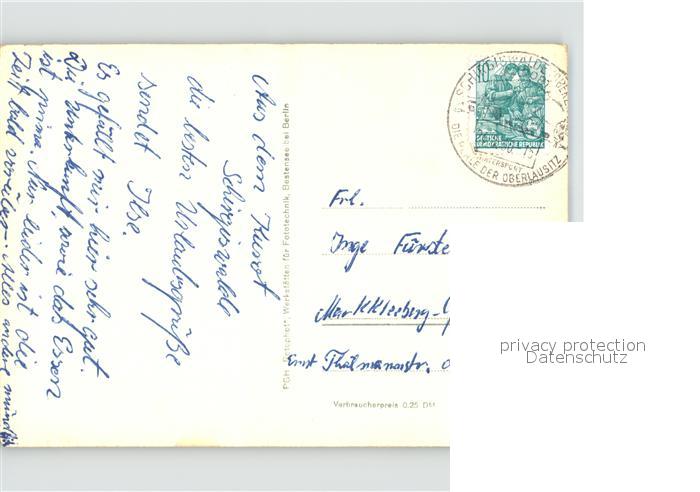 Aus dem Kurort
Schirgiswalde
die besten Urlaubsgrüße
sendet Ilse.
Es gefällt mir hier sehr gut.
Die Unterkunft, sowie das Essen
ist prima. Nur leider ist die
Zeit bald vorüber. Alles andere mündlich
PGH „Fotophot", Werkstätten für Fototechnik, Bestensee bei Berlin
10
DEUTSCHE
DEMOKRATISCHE REPUBLIK
SCHIRGISWALDE
WINTERSPORT
DIE PERLE DER OBERLAUSITZ
Frl.
Inge Fürste
Markkleeberg-
Ernst Thälmannstr.
Verbraucherpreis 0,25 DM
privacy protection
Datenschutz